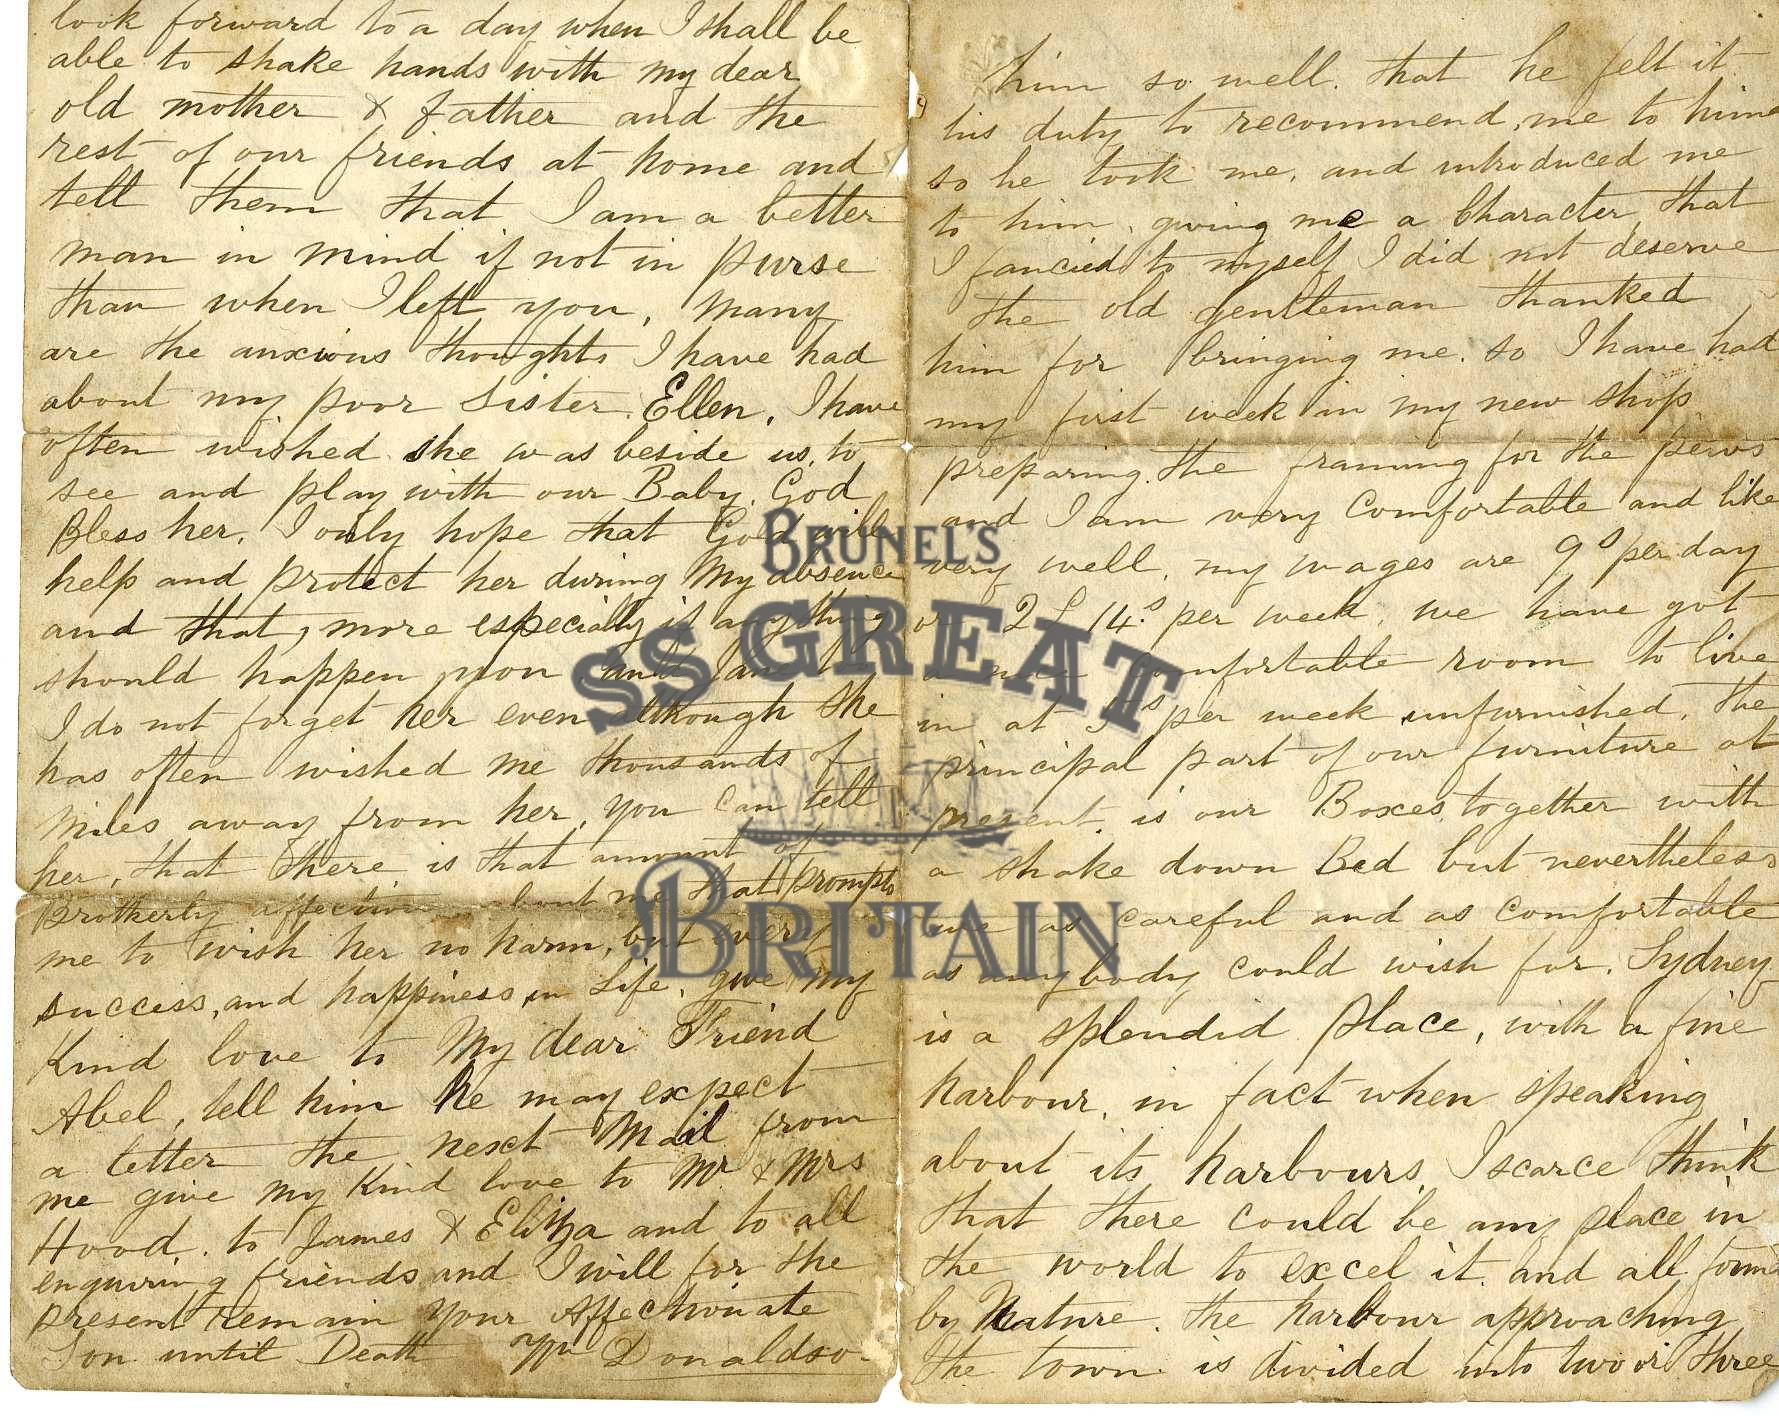 look forward to a day when I shall be
able to shake hands with my dear
old mother & father and the
rest of our friends at home and
tell them that I am a better
man in mind if not in purse
than when I left you, Many
are the anxious thoughts I have had
about my poor Sister Ellen, I have
often wished she was beside us, to
see and play with our Baby, God
Bless her, I only hope that God will
help and protect her during My absence
and that, more especially if anything
should happen you and Jane
I do not forget her even although she
has often wished me thousands of
Miles away from her, you can tell
her, that there is that amount of
Brotherly affection about me that prompts
me to wish her no harm, but every
success, and happiness in Life, give my
Kind love to My dear Friend
Abel, tell him he may expect
a letter the next Mail from
me give my Kind love to Mr & Mrs
Hood. to James & Eliza and to all
enquiring friends and I will for the
present remain your Affectionate
Son until Death Wm Donaldso
him so well. that he felt it
his duty to recommend me to him
so he took me, and introduced me
to him, giving me a Character that
I fancied to myself I did not deserve
The old gentleman thanked
him for bringing me. so I have had
my first week in my new shop
preparing the framing for the pews
and I am very Comfortable and like
very well, my wages are 9s per day
or 2£ 14s per week, we have got
a nice comfortable room to live
in at s per week unfurnished, the
principal part of our furniture at
present, is our Boxes together with
a shake down Bed but nevertheless
we as careful and as comfortable
as anybody could wish for, Sydney
is a splendid place, with a fine
harbour, in fact when speaking
about its harbours, I scarce think
that there could be any place in
the world to excel it. and all form
by Nature. the harbour approaching
the town is divided into two or three
BRUNEL'S
SS GREAT
BRITAIN